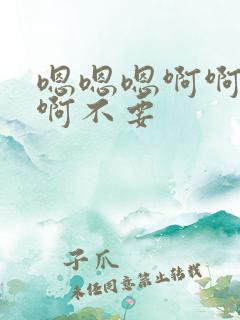 嗯嗯嗯啊啊
啊不要
子爪
未经同意禁止转载